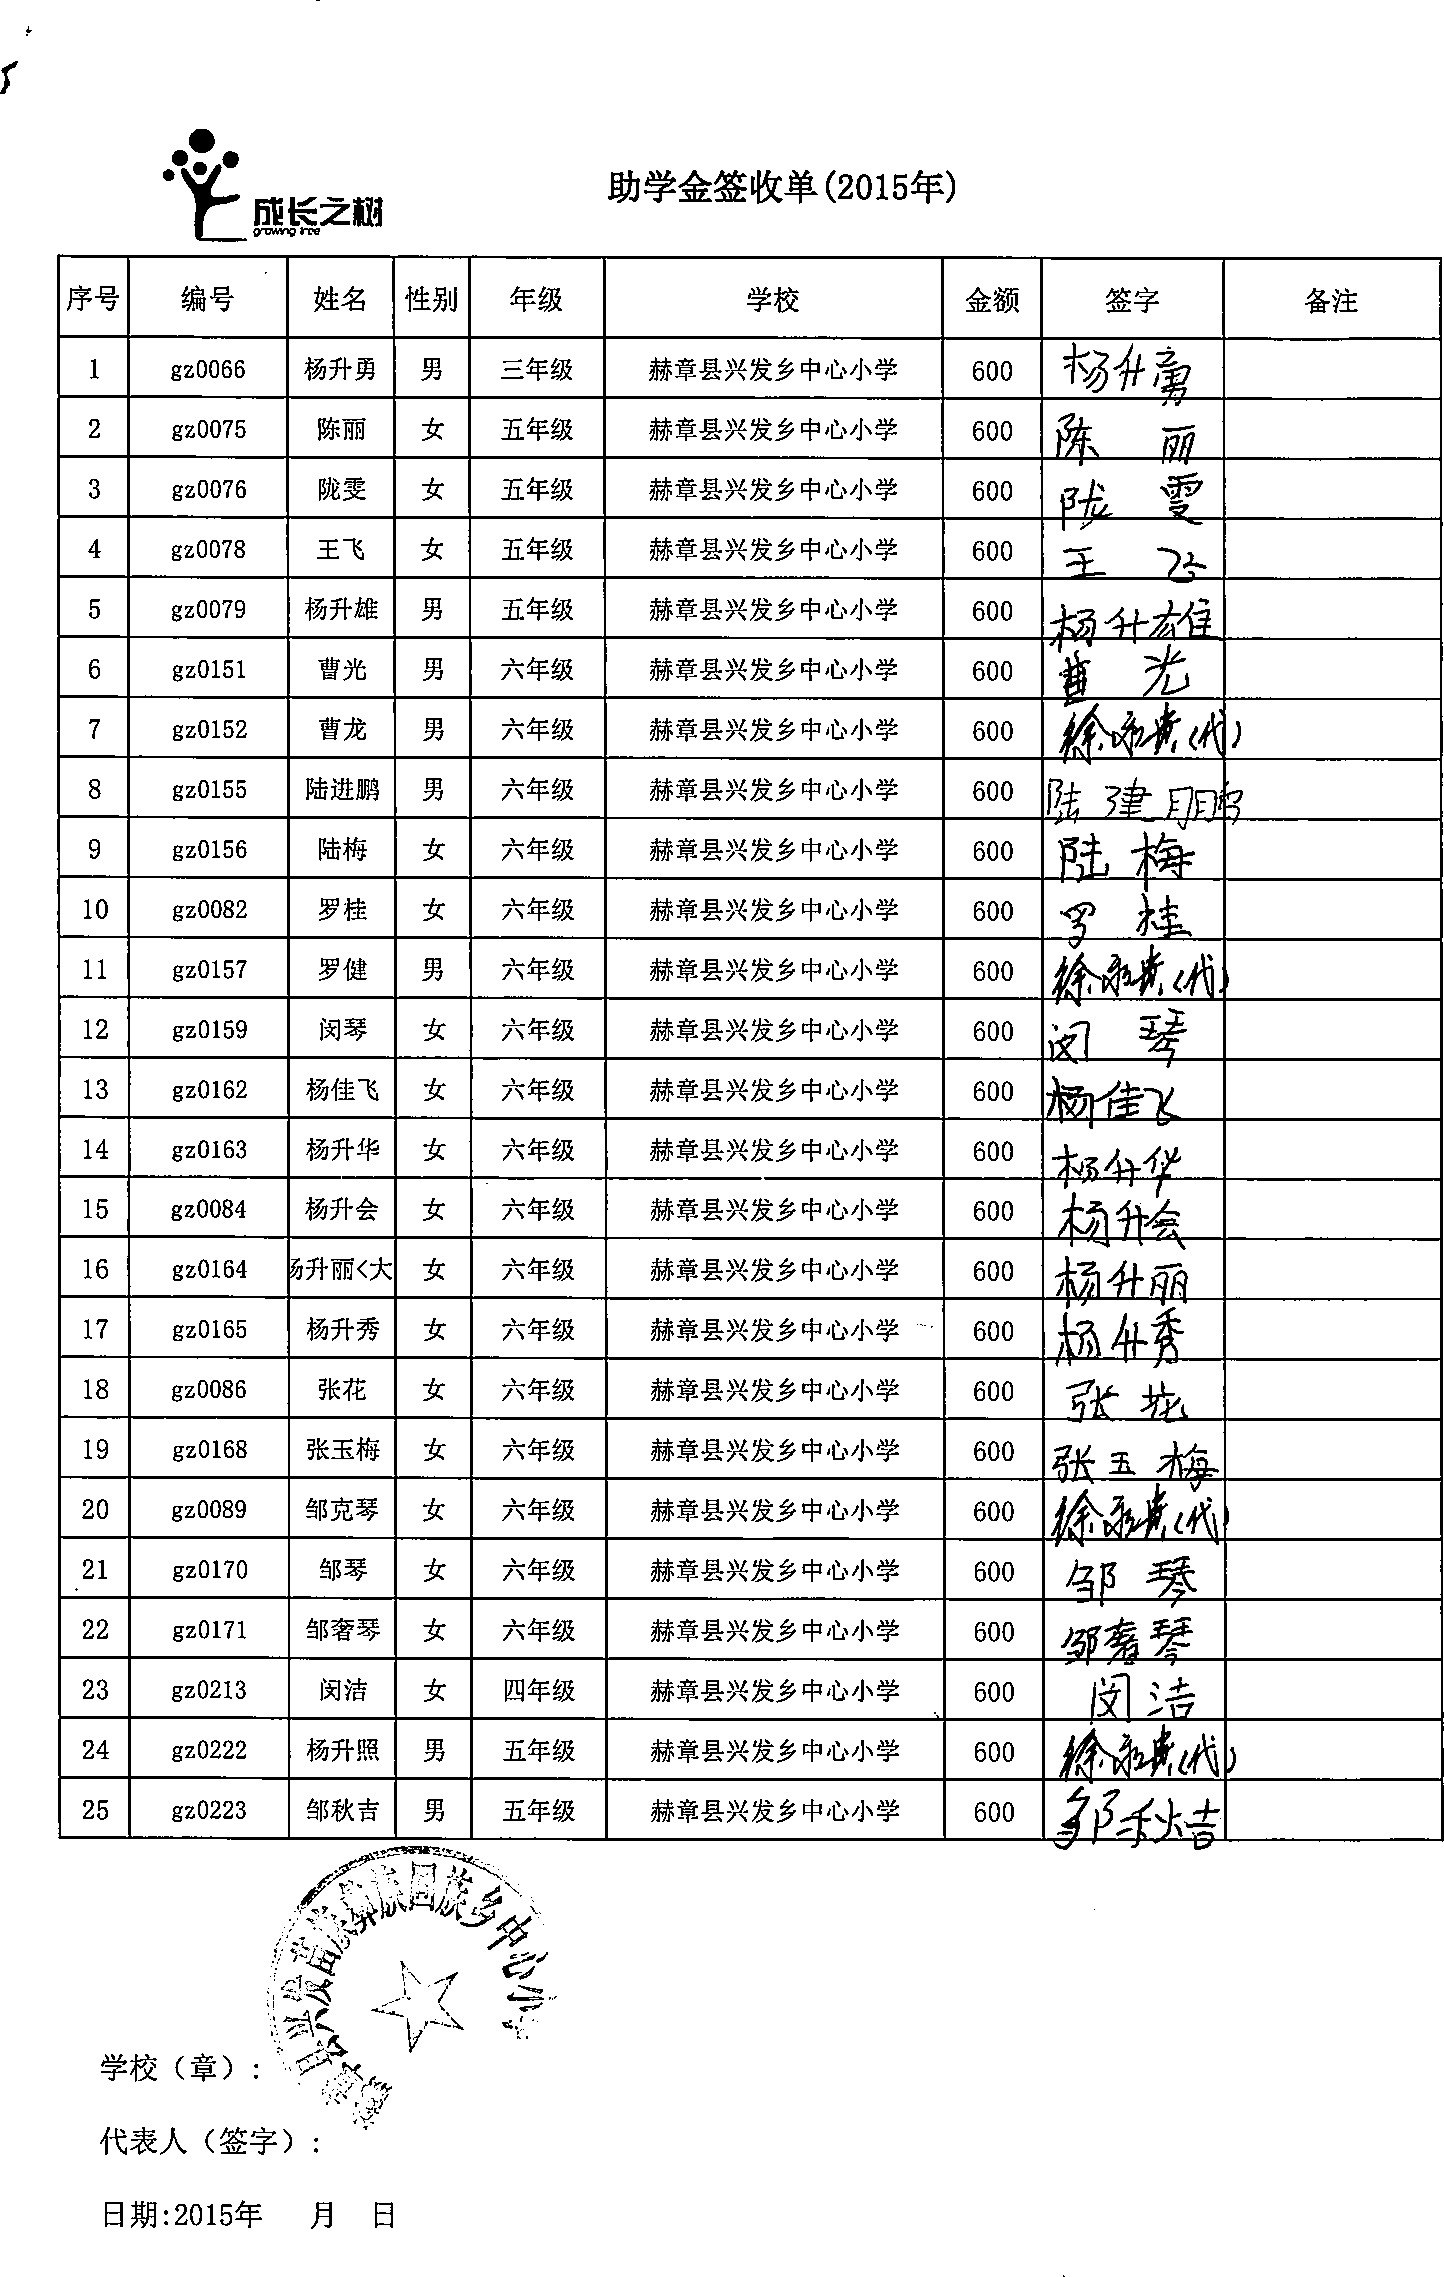 成长之树
growing tree
助学金签收单(2015年)
序号 编号 姓名 性别 年级 学校 金额 签字 备注
1 gz0066 杨升勇 男 三年级 赫章县兴发乡中心小学 600 杨升勇
2 gz0075 陈丽 女 五年级 赫章县兴发乡中心小学 600 陈丽
3 gz0076 陇雯 女 五年级 赫章县兴发乡中心小学 600 陇雯
4 gz0078 王飞 女 五年级 赫章县兴发乡中心小学 600 王飞
5 gz0079 杨升雄 男 五年级 赫章县兴发乡中心小学 600 杨升雄
6 gz0151 曹光 男 六年级 赫章县兴发乡中心小学 600 曹光
7 gz0152 曹龙 男 六年级 赫章县兴发乡中心小学 600 徐永贵(代)
8 gz0155 陆进鹏 男 六年级 赫章县兴发乡中心小学 600 陆建鹏
9 gz0156 陆梅 女 六年级 赫章县兴发乡中心小学 600 陆梅
10 gz0082 罗桂 女 六年级 赫章县兴发乡中心小学 600 罗桂
11 gz0157 罗健 男 六年级 赫章县兴发乡中心小学 600 徐永贵(代)
12 gz0159 闵琴 女 六年级 赫章县兴发乡中心小学 600 闵琴
13 gz0162 杨佳飞 女 六年级 赫章县兴发乡中心小学 600 杨佳飞
14 gz0163 杨升华 女 六年级 赫章县兴发乡中心小学 600 杨升华
15 gz0084 杨升会 女 六年级 赫章县兴发乡中心小学 600 杨升会
16 gz0164 杨升丽<大 女 六年级 赫章县兴发乡中心小学 600 杨升丽
17 gz0165 杨升秀 女 六年级 赫章县兴发乡中心小学 600 杨升秀
18 gz0086 张花 女 六年级 赫章县兴发乡中心小学 600 张花
19 gz0168 张玉梅 女 六年级 赫章县兴发乡中心小学 600 张玉梅
20 gz0089 邹克琴 女 六年级 赫章县兴发乡中心小学 600 徐永贵(代)
21 gz0170 邹琴 女 六年级 赫章县兴发乡中心小学 600 邹琴
22 gz0171 邹奢琴 女 六年级 赫章县兴发乡中心小学 600 邹奢琴
23 gz0213 闵洁 女 四年级 赫章县兴发乡中心小学 600 闵洁
24 gz0222 杨升照 男 五年级 赫章县兴发乡中心小学 600 徐永贵(代)
25 gz0223 邹秋吉 男 五年级 赫章县兴发乡中心小学 600 邹秋吉
赫章县兴发苗族彝族回族乡中心小学
学校（章）:
代表人（签字）:
日期:2015年 月 日